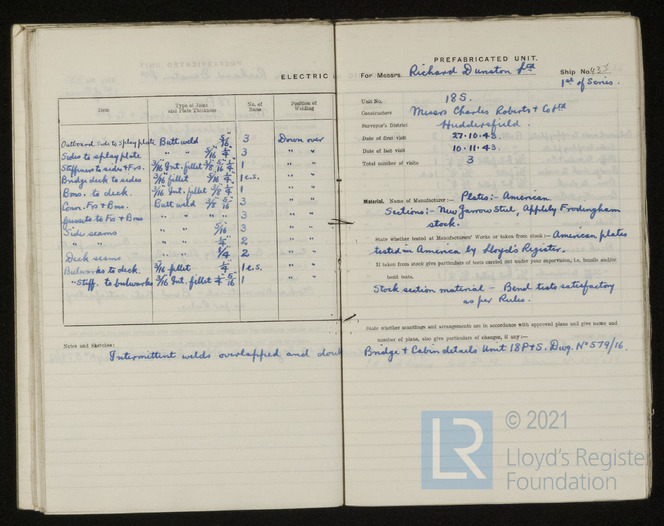 ELECTRIC
Item
Type of Joint and Plate Thickness
No. of Runs
Position of Welding
Outboard side to splay plate Butt weld 5/16" 3 Down over
Sides to splay plate " " 5/16" 1/4" 3 " "
Stiffeners to sides & Frs. 3/16" Int. fillet 3/8" 5/16" 1/4" 1 " "
Bridge deck to sides 3/16" fillet 5/16" 1/4" 1 c.s. " "
Bms. to deck 3/16" Int. fillet 3/8" 1/4" 1 " "
Conn. Frs & Bms. Butt weld 3/8" 5/16" 3 " "
Gussets to Frs & Bms " " " " 3 " "
Side seams " " 5/16" 3 " "
" " " " 1/4" 2 " "
Deck seams " " 1/4" 2 " "
Bulwarks to deck 3/16" fillet 1/4" 1 c.s. " "
" Stiff. to bulwarks 3/16" Int. fillet 1/4" 5/16" 1 " "
Notes and sketches:
Intermittent welds overlapped and
PREFABRICATED UNIT.
For Messrs. Richard Dunston Ltd Ship No. 435
1st of Series.
Unit No. 18 S.
Constructors Messrs Charles Roberts & Co Ltd
Surveyor's District Huddersfield.
Date of first visit 27.10.43.
Date of last visit 10.11.43.
Total number of visits 3
Material. Name of Manufacturer :— Plates:- American
Sections:- New Jarrow Steel, Appleby Frodingham
stock.
State whether tested at Manufacturers' Works or taken from stock :— American plates
tested in America by Lloyd's Register.
If taken from stock give particulars of tests carried out under your supervision, i.e. tensile and/or
bend tests.
Stock section material - Bend tests satisfactory
as per Rules.
State whether scantlings and arrangements are in accordance with approved plans and give name and
number of plans, also give particulars of changes, if any :—
Bridge & Cabin details Unit 18 P & S. Dwg. No 579/16.
LR
© 2021
Lloyd's Register
Foundation